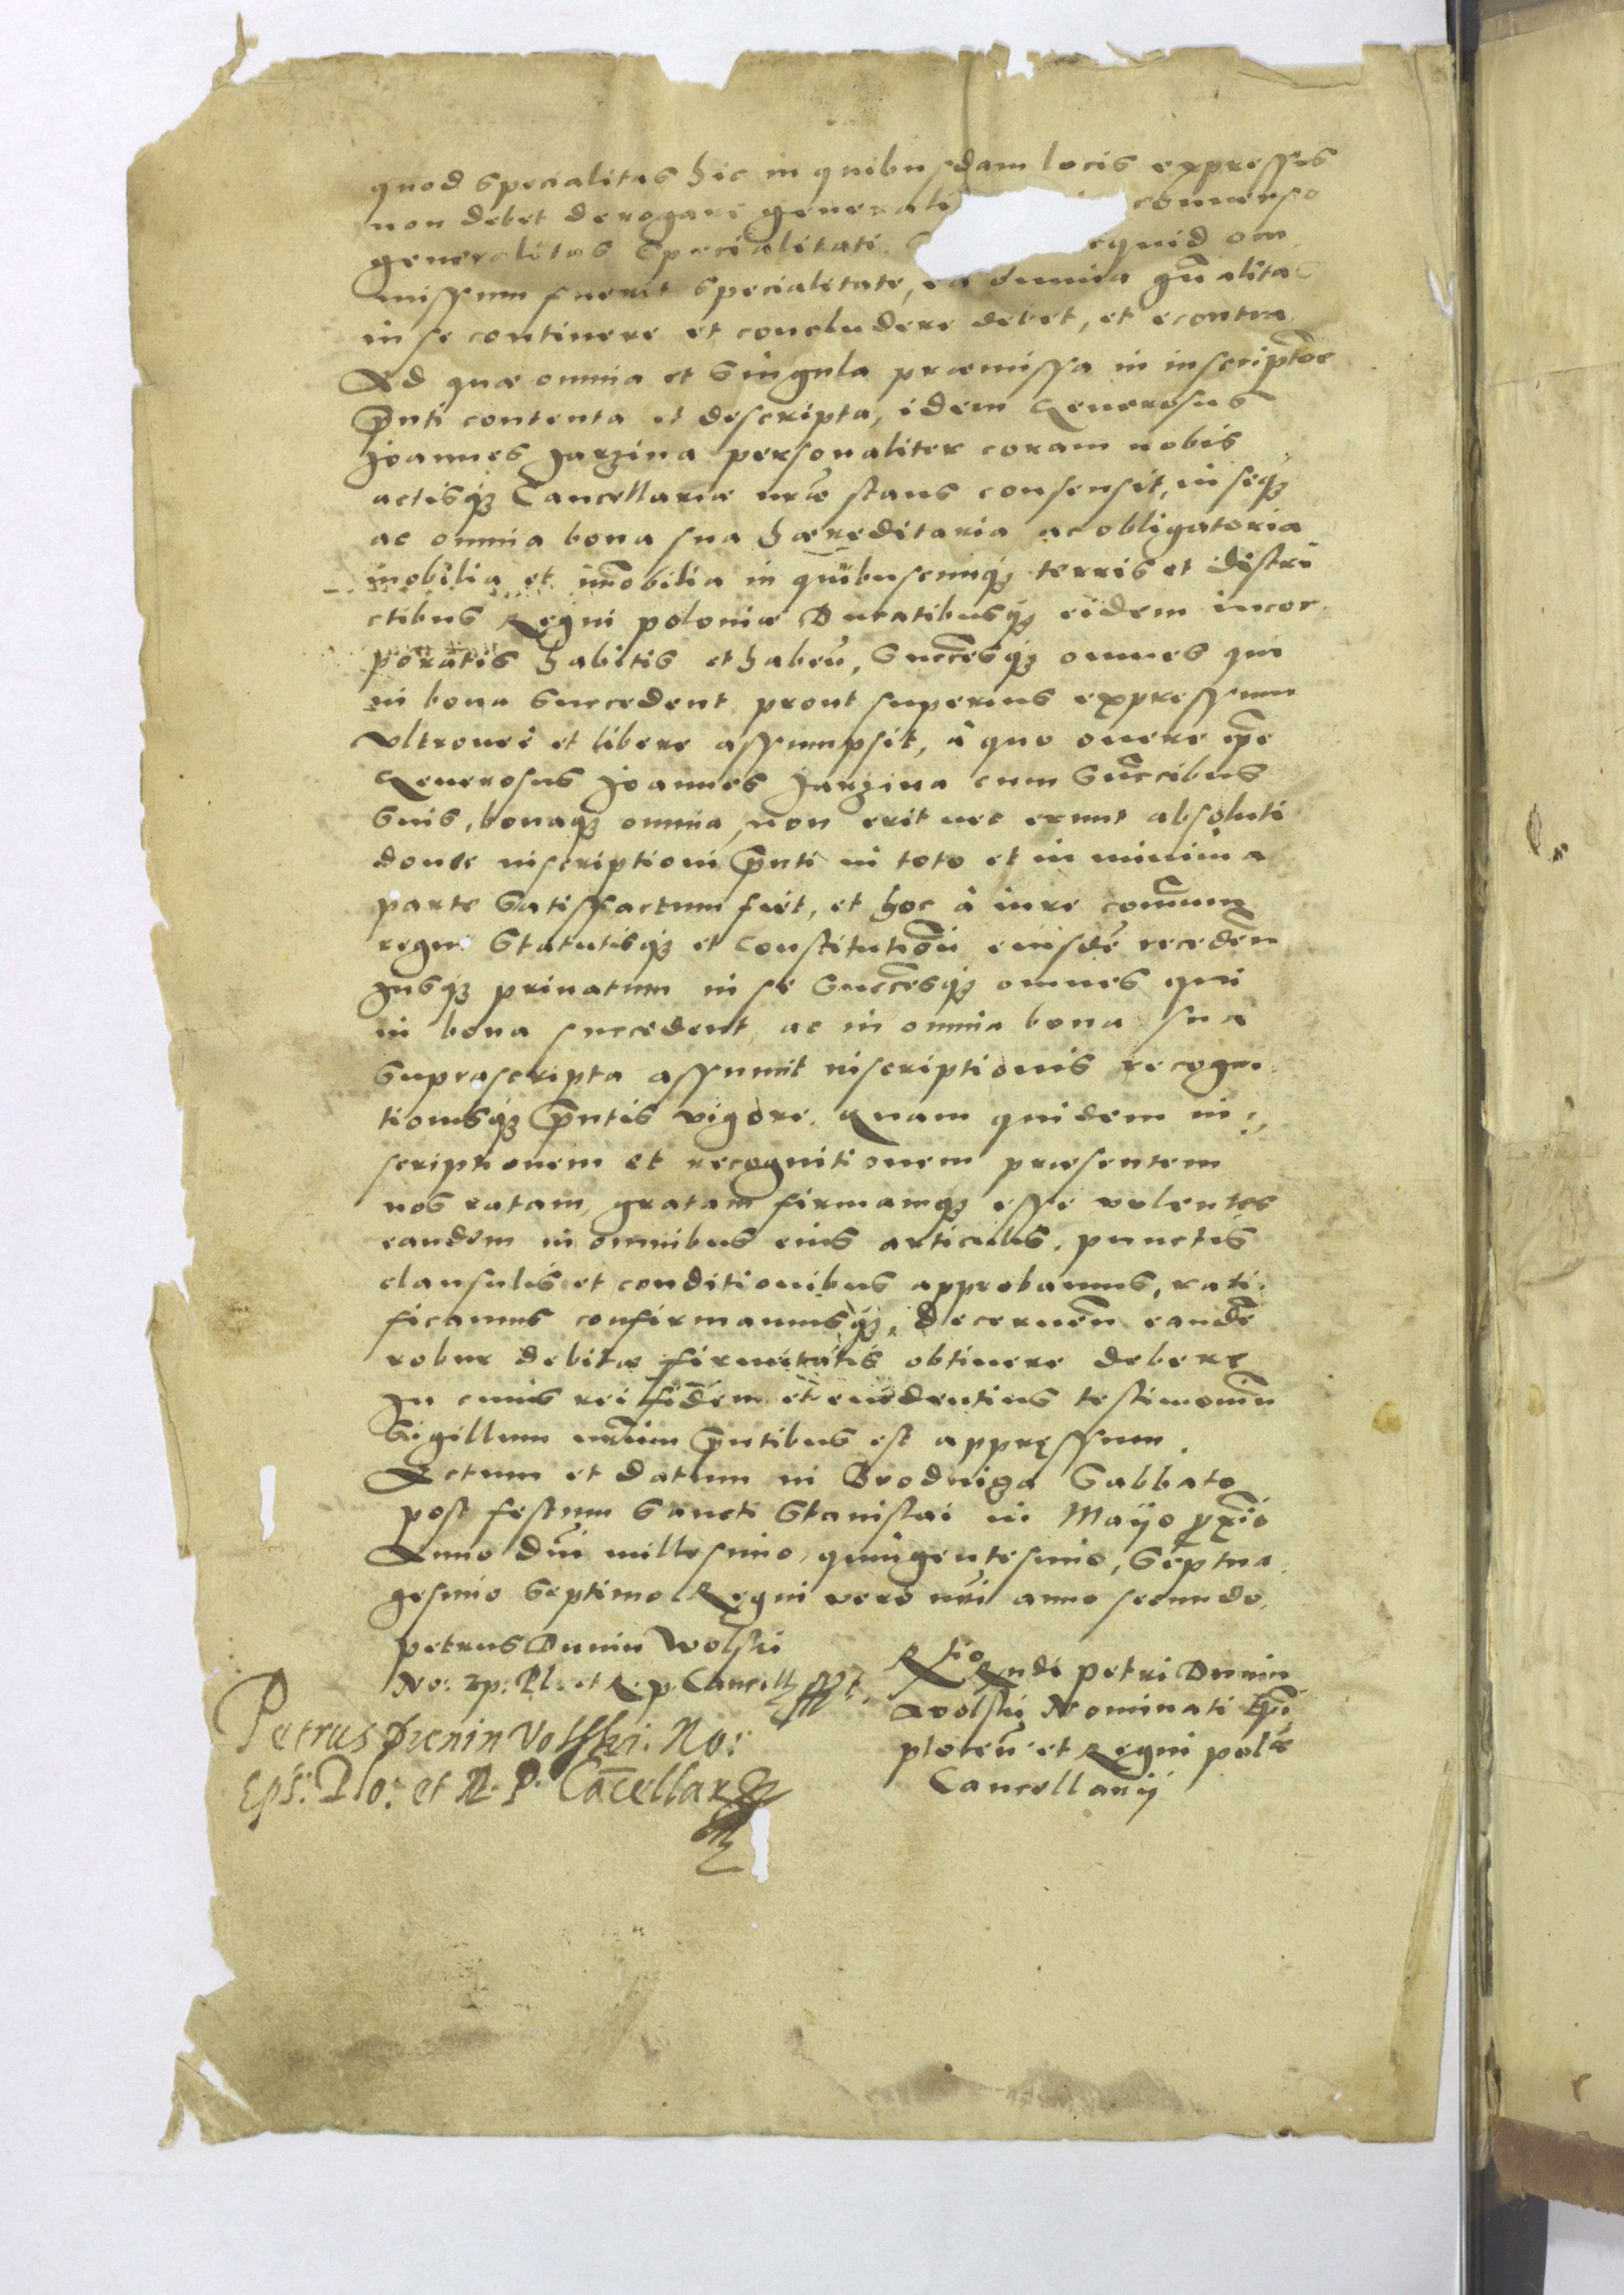 quod specialitas hic in quibusdam locis expressis
non debet derogare generali conuerso
generalitas specialitati quid om
missum fuerit specialitate, ea omnia gn̄alitas
in se continere et concludere debet, et econtra
Ad quæ omnia et singula præmissa in inscriptōe
p̄nti contenta et descripta, idem Generosus
Joannes Jarzina personaliter coram nobis
actisq₃ Cancellariæ nrǣ stans consensit, in seq₃
ac omnia bona sua hæreditaria ac obligatoria
mobilia et im̄obilia in quibuscunq₃ terris et distri
ctibus Regni poloniæ Ducatibusq₃ eidem incor
poratis habitis et habeñ, Succ̄esq₃ omnes qui
in bona succedent prout superius expressum
Vltronee et libere assumpsit, à quo onere ip̄e
Generosus Joannes Jarzina cum Succ̄ibus
suis, bonaq₃ omnia, non erit nec erunt absoluti
donec inscriptioni p̄nti in toto et in minima
parte satisfactum fiet, et hoc à iure com̄uni
regni Statutisq₃ et Constitutiōn̄ eiusdē receden̄
Jusq₃ priuatum in se Succ̄esq₃ omnes qui
in bona succedent ac in omnia bona sua
suprascripta assumit inscriptionis recogni
tionisq₃ p̄ntis vigore. Quam quidem in
scriptionem et recognitionem præsentem
nos ratam, gratam firmamq₃ esse volentes
eandem in omnibus eius articulis, punctis
clausulis et conditionibus approbamus, rati
ficamus confirmamusq₃, decernen̄ eandē
robur debitæ firmitatis obtinere debere
In cuius rei fidem et euidentius testimoniū
Sigillum nr̄um p̄ntibus est appressum.
Actum et datum in Brodniza Sabbato
post festum Sancti Stanislai in Mayo pxīo
Anno Dn̄i millesimo, quingentesimo, Septua
gesimo septimo Regni vero nr̄i anno secundo.
Petrus Dunin Wolski
No: Ep: Pl: et R. p. Cancell sst.
Petrus Dunin Volski. No:
Eps: Plo: et R. P. Cācellar
Rtio Rndi Petri Dunin
Wolski Nominati Ep̄i
plocen̄ et Regni polǣ
Cancellarij